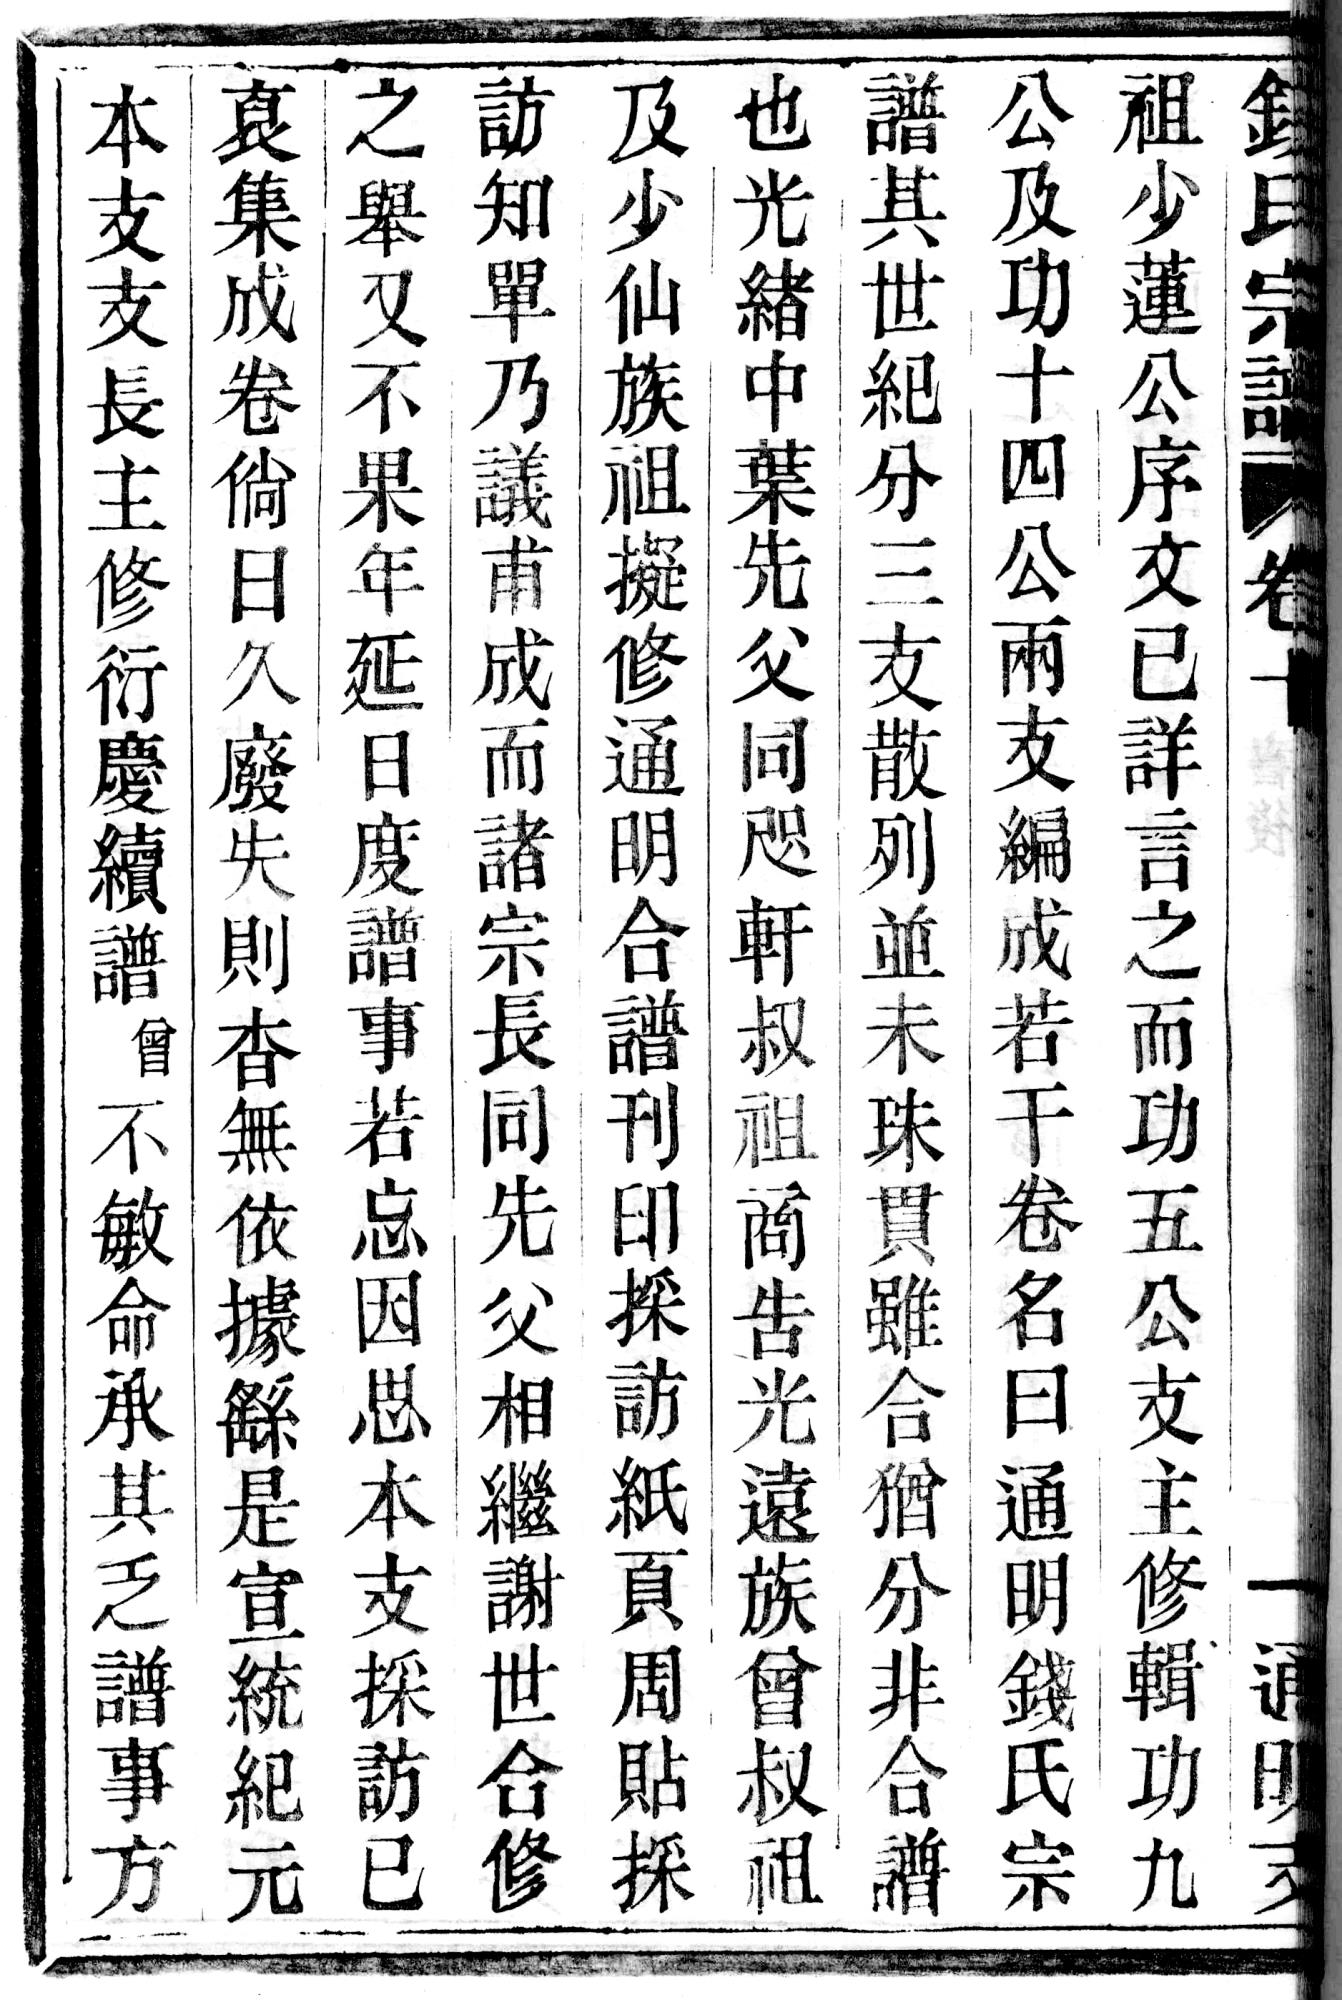 錢氏宗譜 卷十 一 通明支
祖少蓮公序文已詳言之而功五公支主修輯功九
公及功十四公兩支編成若干卷名曰通明錢氏宗
譜其世紀分三支散列並未珠貫雖合猶分非合譜
也光緒中葉先父同咫軒叔祖商告光遠族曾叔祖
及少仙族祖擬修通明合譜刊印採訪紙頁周貼採
訪知單乃議甫成而諸宗長同先父相繼謝世合修
之舉又不果年延日度譜事若忘因思本支採訪已
裒集成卷倘日久廢失則杳無依據繇是宣統紀元
本支支長主修衍慶續譜曾不敏命承其乏譜事方